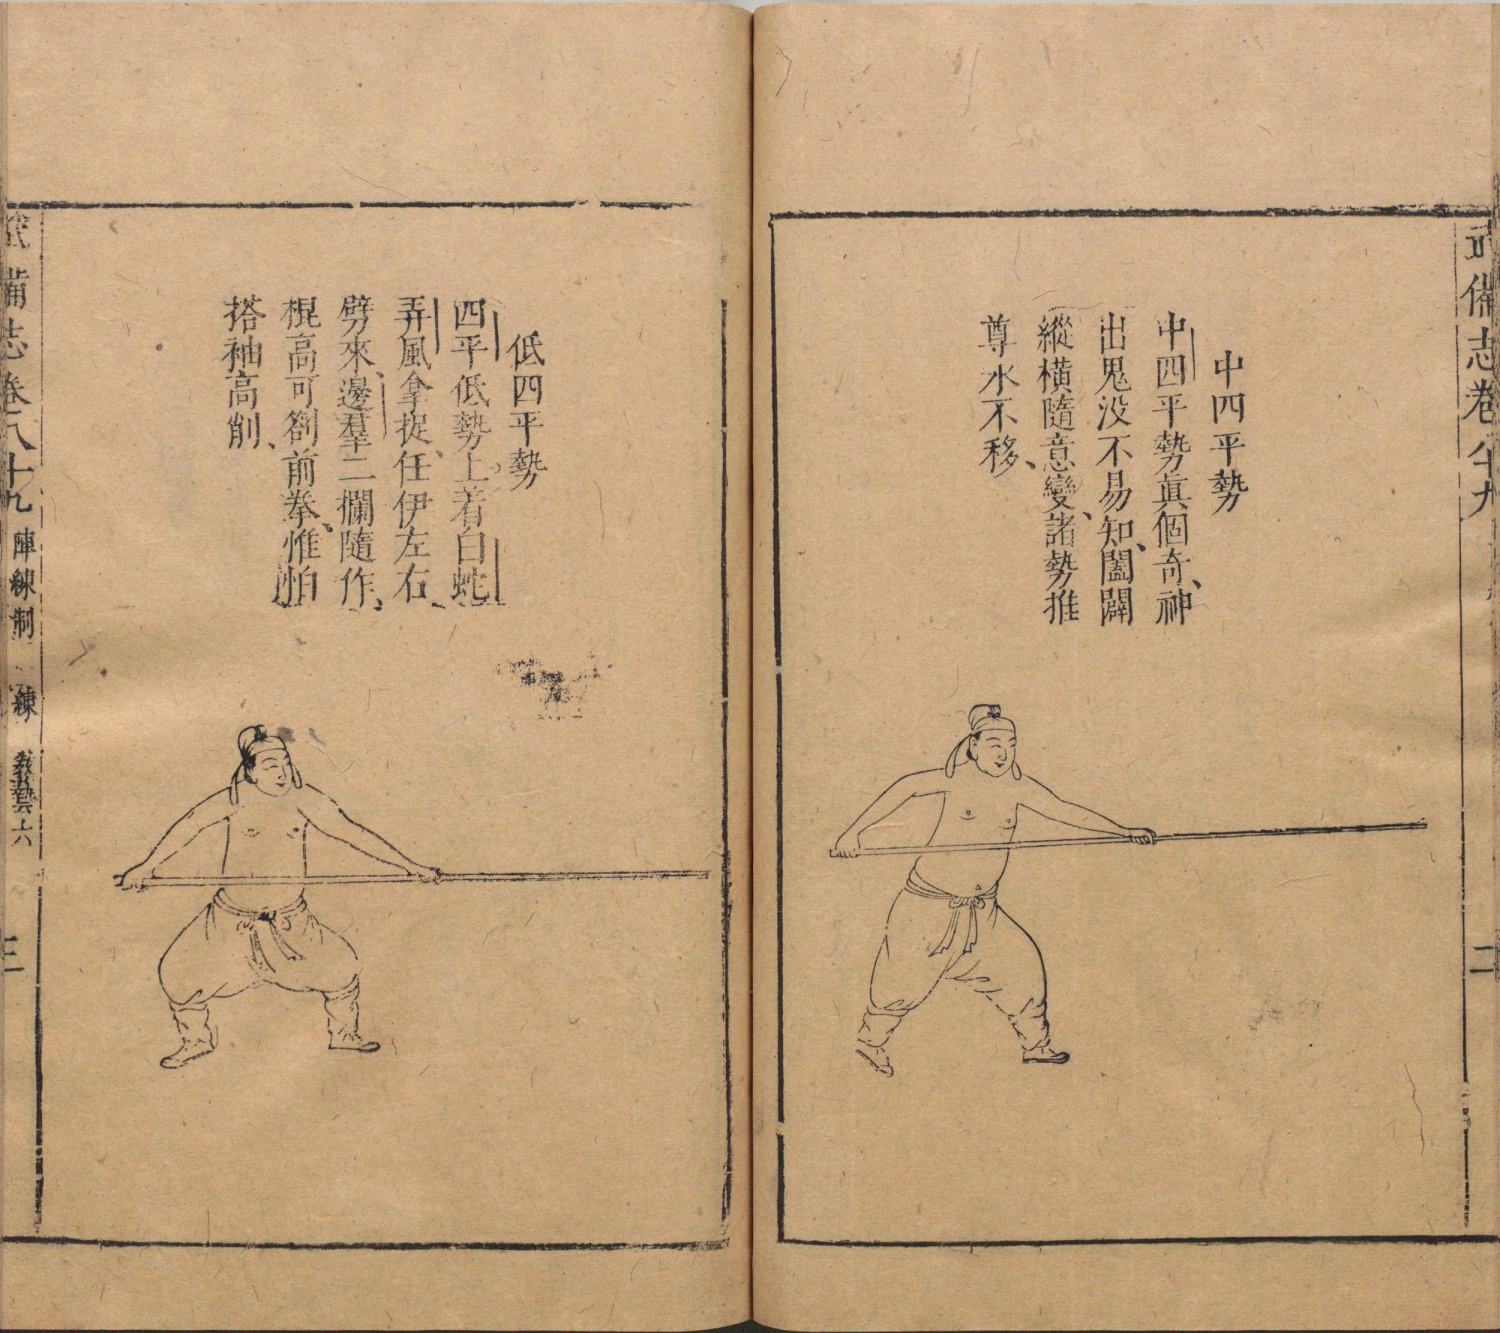 武備志卷八十九
二
中四平勢
中四平勢眞個奇、神
出鬼没不易知、闔闢
縱橫隨意變、諸勢推
尊水不移、
低四平勢
四平低勢上着白蛇
弄風拿捉、任伊左右、
劈來、邊羣二攔隨作、
棍高可劄前拳、惟怕
搭袖高削、
武備志卷八十九 陣練制 練 教藝六
三